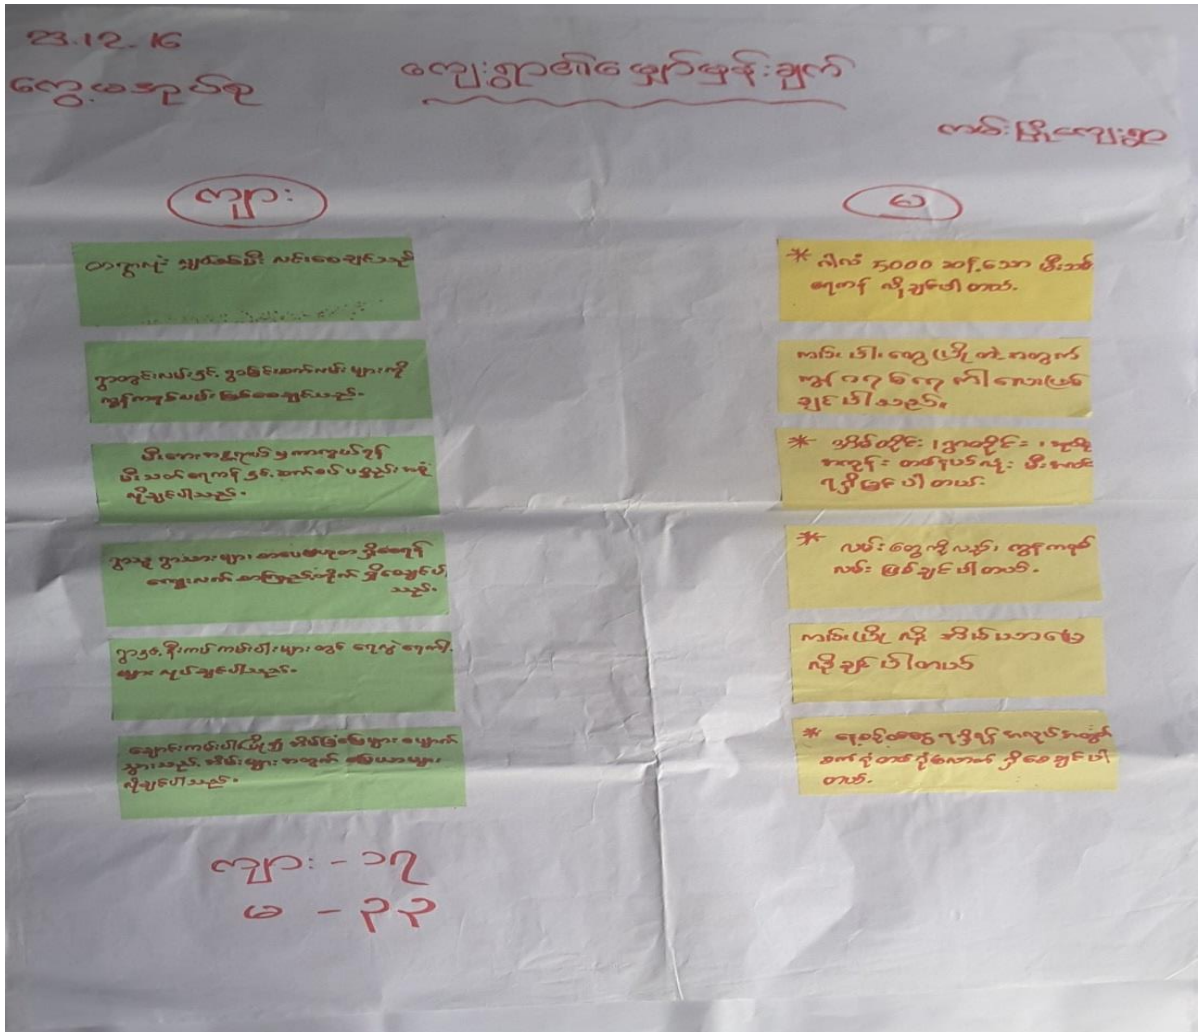 23.12.16
ကွေ့မအုပ်စု
ကျေးရွာ၏မျှော်မှန်းချက်
ကမ်းပြိုကျေးရွာ
ကျား
တရွာလုံး လျှပ်စစ်မီး လင်းစေချင်သည်
ရွာတွင်းလမ်းနှင့် ရွာချင်းဆက်လမ်းများကို
ကွန်ကရစ်လမ်း ဖြစ်စေချင်သည်။
မီးဘေးအန္တရာယ် မှကာကွယ်ရန်
မီးသတ်ရေကန်နှင့် ဆက်စပ်ပစ္စည်း အစုံ
လိုချင်ပါသည်။
ရွာသူ ရွာသားများ စာပေဗဟုသုတ ရှိစေရန်
ကျေးလက် စာကြည့်တိုက် ရှိစေချင်ပါ
သည်။
ရွာနှင့်နီးကပ် ကမ်းပါးများတွင် ရေလွှဲ ရေကာ
များ လုပ်ချင်ပါသည်။
ချောင်းကမ်းပါးပြို၍ အိမ်ခြံမြေများ ပျောက်
သွားသည့် အိမ်များ အတွက် မြေယာများ
လိုချင်ပါသည်။
ကျား - ၁၇
မ - ၃၃
မ
* ဂါလံ 5000 ဆန့်သော မီးသတ်
ရေကန် လိုချင်ပါတယ်။
ကမ်းပါးတွေပြိုတဲ့အတွက်
ချင်ပါသည်။
* အိမ်တိုင်း၊ ရွာတိုင်း၊
မီးအလင်း
ရရှိချင်ပါတယ်။
* လမ်းတွေကိုလည်း ကွန်ကရစ်
လမ်း ဖြစ်ချင်ပါတယ်။
ကမ်းပြိုလို့ အိမ်ယာမြေ
လိုချင်ပါတယ်
* ရရှိရန် အလုပ်အတွက်
စက်ရုံတစ်ရုံလောက် ရှိစေချင်ပါ
တယ်။